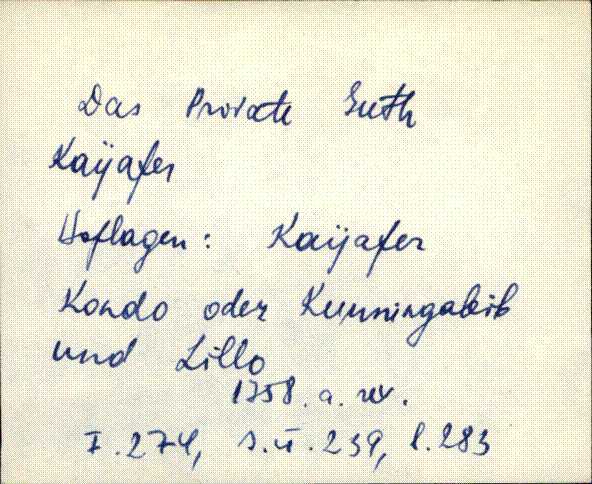 Das Private Guth
Kaijafer
Hoflagen: Kaijafer
Kondo oder Kunningakib
und Lillo
1758. a. rev.
I. 274, s. II. 239, l. 283